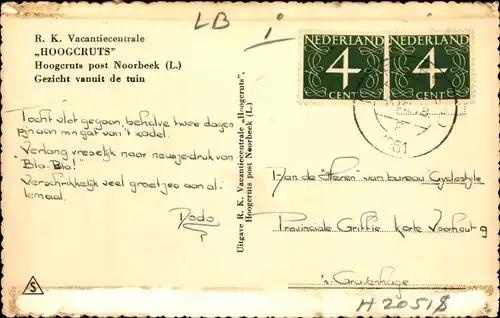 LB i
R. K. Vacantiecentrale
„HOOGCRUTS”
Hoogcruts post Noorbeek (L.)
Gezicht vanuit de tuin
NEDERLAND
4
CENT
NEDERLAND
4
CENT
1961
Tocht vlot gegaan, behalve twee dagen
pijn aan m'n gat van 't zadel.
Verlang vreselijk naar nieuwsje-druk van
"Bla-Bla!"
Verschrikkelijk veel groetjes aan al-
lemaal.
Dodo
Uitgave R. K. Vacantiecentrale „Hoogcruts”,
Hoogcruts post Noorbeek (L.)
Aan de "Heren" van bureau Cyclostyle
Provinciale Griffie Korte Voorhout 9
's-Gravenhage
H 20518
S